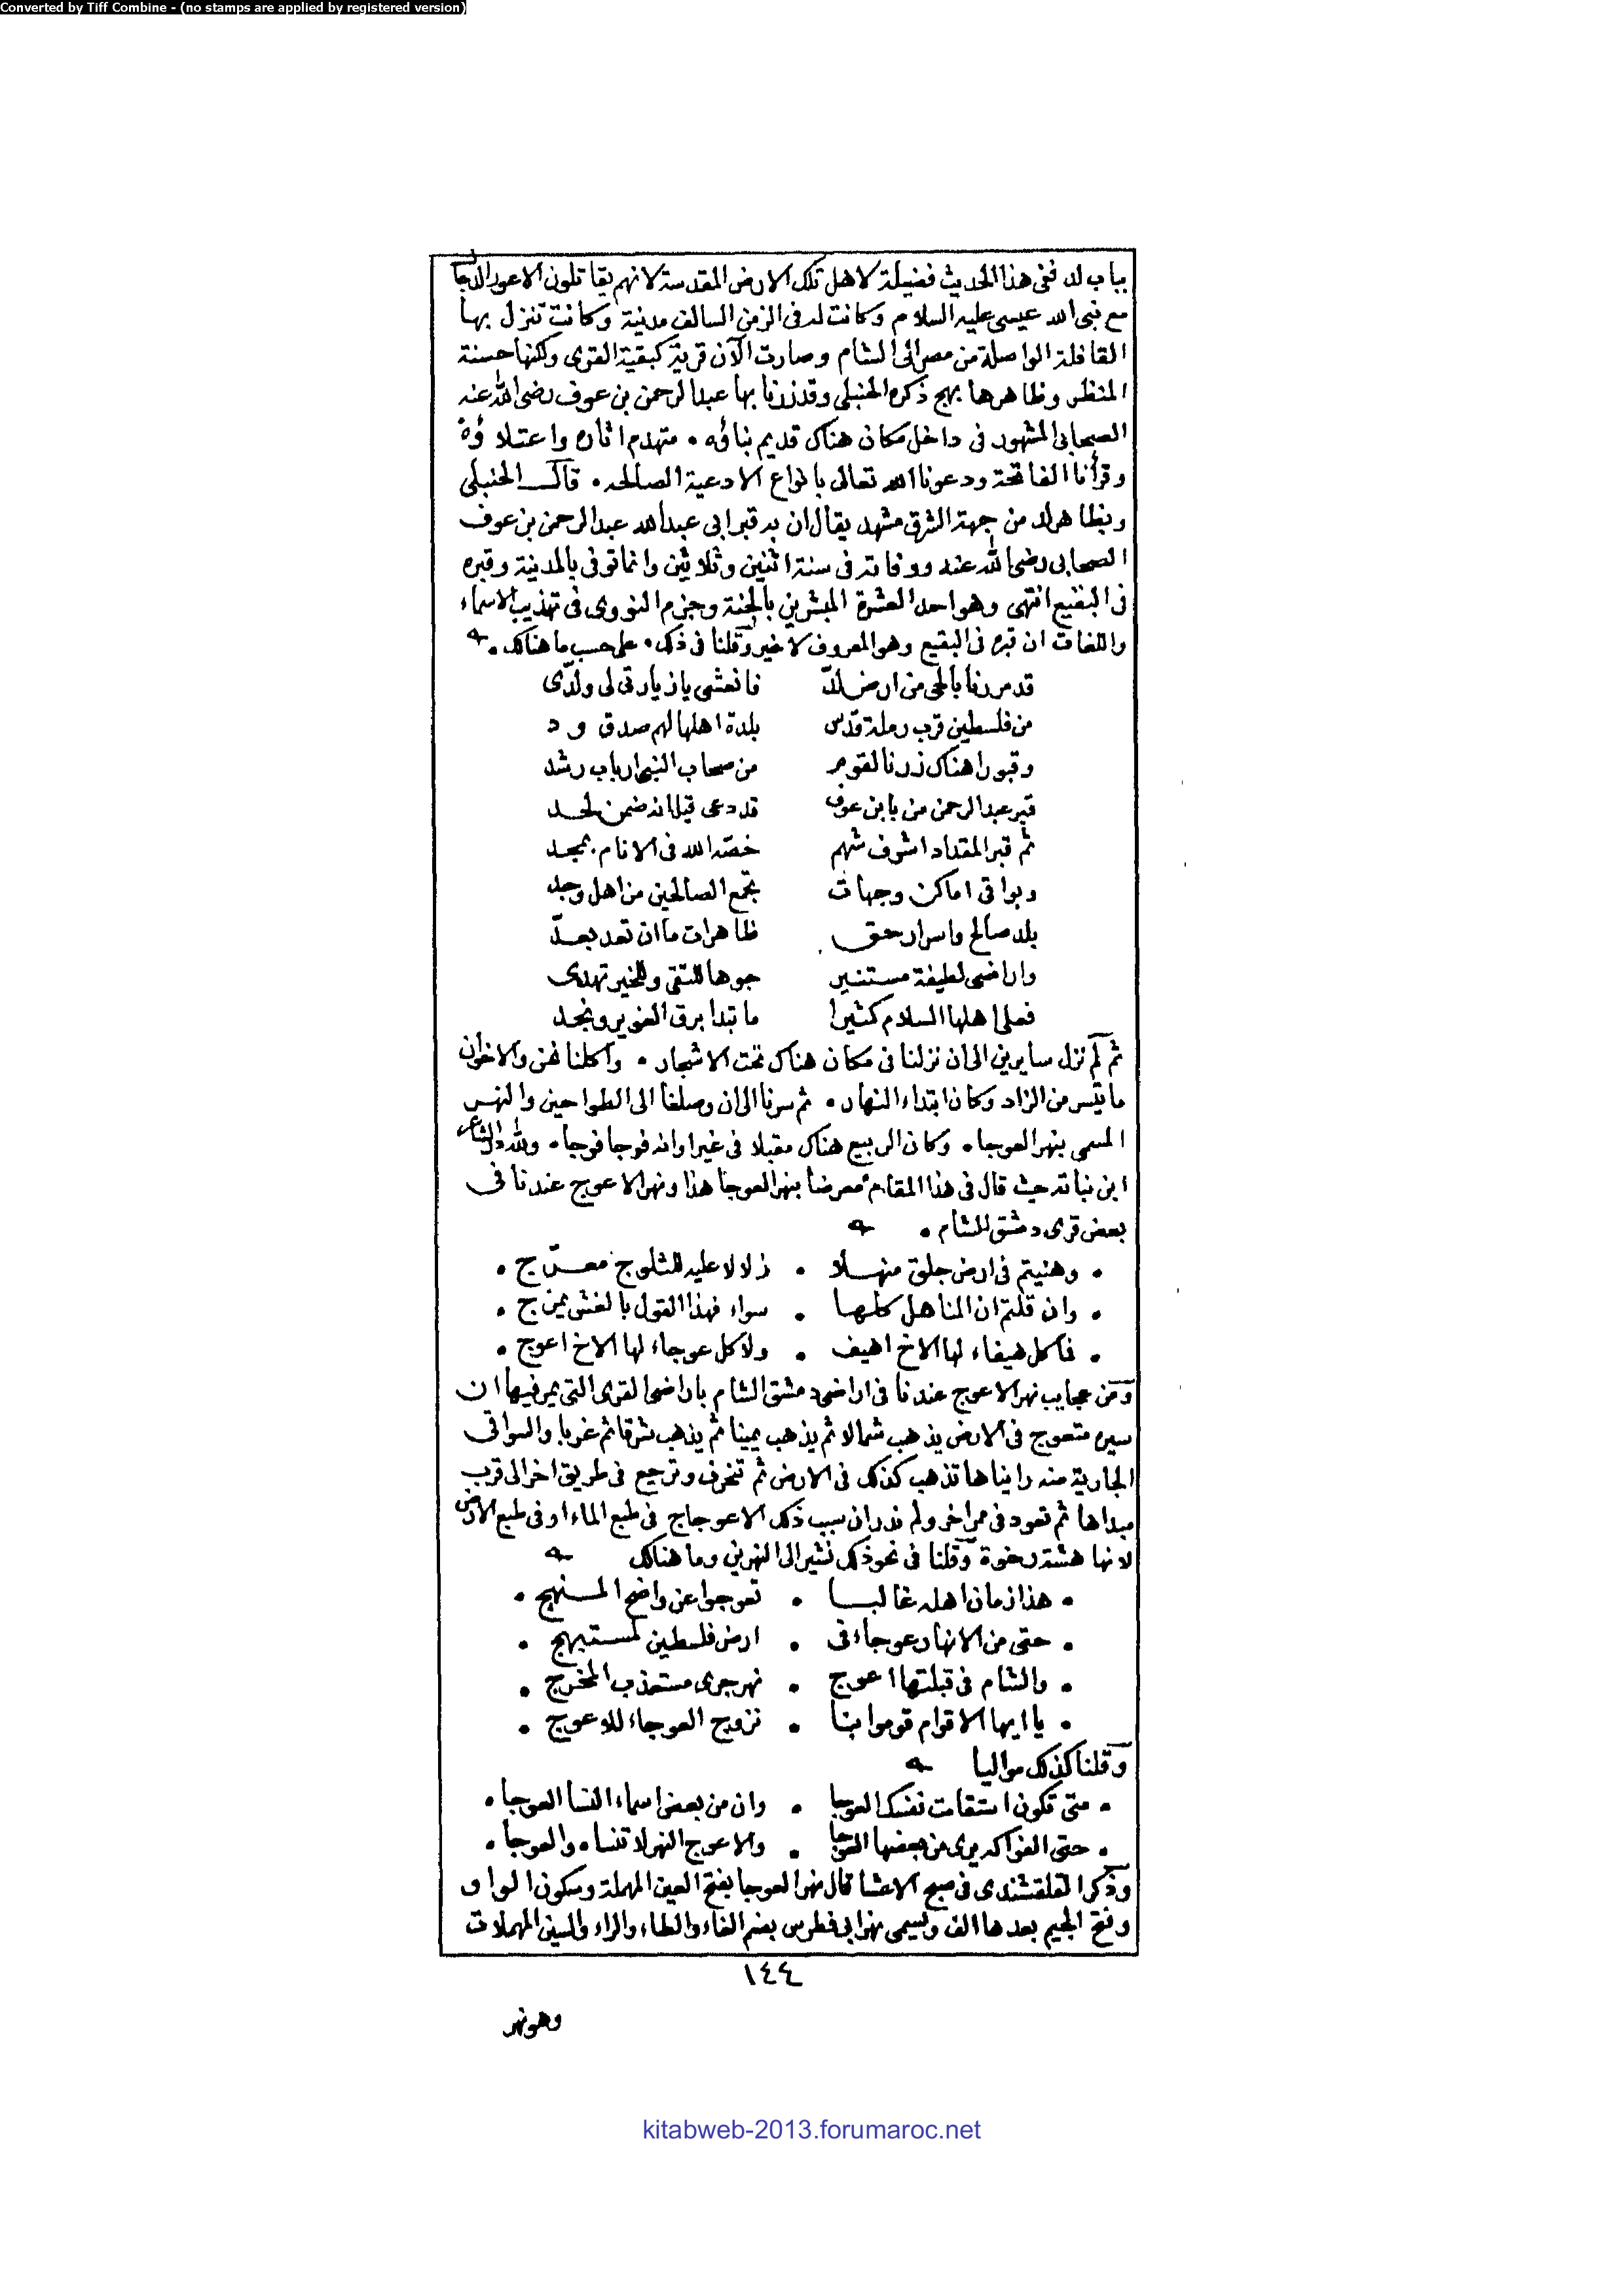 Converted by Tiff Combine - (no stamps are applied by registered version)
بباب لد ففى هذا الحديث فضيلة لاهل تلك الارض المقدسة لانهم يقاتلون الاعور الدجال
مع نبى الله عيسى عليه السلام وكانت لد فى الزمن السالف مدينة وكانت تنزل بها
القافلة الواصلة من مصر الى الشام وصارت الآن قرية كبقية القرى ولكنها حسنة
المنظر وظاهرها بهج ذكره الحنبلى وقد زرنا بها عبد الرحمن بن عوف رضى الله عنه
الصحابى المشهور فى داخل مكان هناك قديم بناؤه ٠ متهدم اثاره واعتلاؤه
وقرأنا الفاتحة ودعونا الله تعالى بانواع الادعية الصالحه ٠ قال الحنبلى
وبظاهر لد من جهة الشرق مشهد يقال ان به قبر ابى عبد الله عبد الرحمن بن عوف
الصحابى رضى الله عنه ووفاته فى سنة اثنين وثلاثين وانما توفى بالمدينة وقبره
فى البقيع انتهى وهو احد العشرة المبشرين بالجنة وجزم النووى فى تهذيب الاسماء
واللغات ان قبره فى البقيع وهو المعروف لا غير وقلنا فى ذلك ٠ على حسب ما هنالك ٠
قد مررنا بالحى من ارض لدّ فانعشى يا زيارتى لى ولدّى
من فلسطين قرب رملة قدس بلدة اهلها لهم صدق ود
وقبورا هناك زرنا لقوم من صحاب النبى ارباب رشد
قبر عبد الرحمن من بابن عوف قد دعى قيل انه ضمن لحد
ثم قبر المقداد اشرف شهم خصّه الله فى الانام بمجد
وبواقى اماكن وجهات بجمع الصالحين من اهل وجد
بلد صالح واسرار حق ظاهرات ما ان تعد بعدّ
واراضى لطيفة مستنير جوها للتقى وللخير تهدى
فعلى اهلها السلام كثيرا ما تبدا برق الغوير ونجد
ثم لم نزل سايرين الى ان نزلنا فى مكان هناك تحت الاشجار ٠ واكلنا نحن والاخوان
ما تيسر من الزاد وكان ابتداء النهار ٠ ثم سرنا الى ان وصلنا الى الطواحين والنهر
المسمى بنهر العوجا ٠ وكان الربيع هناك مقبلا فى غير اوانه فوجا فوجا ٠ ولله در الشاعر
ابن نباته حيث قال فى هذا المقام معرضا بنهر العوجا هذا ونهر الاعوج عندنا فى
بعض قرى دمشق الشام ٠
٠ وهنيتم فى ارض جلق منهلا ٠ زلالا عليه للثلوج معرّج ٠
٠ وان قلتم ان المناهل كلها ٠ سواء فهذا القول بالغش يمزج ٠
٠ فما كل هيفاء لها الاخ اهيف ٠ ولا كل عوجاء لها الاخ اعوج ٠
ومن عجايب نهر الاعوج عندنا فى اراضى دمشق الشام باراضى القرى التى يمر فيها ان
سيره متعوج فى الارض يذهب شمالا ثم يذهب يمينا ثم يذهب شرقا ثم غربا والسواقى
الجارية منه رايناها تذهب كذلك فى الارض ثم تنحرف وترجع فى طريق اخر الى قرب
مبداها ثم تعود فى ممر اخر ولم ندر ان سبب ذلك الاعوجاج فى طبع الماء او فى طبع الارض
لانها هشة رخوة وقلنا فى نحو ذلك نشير الى النهرين وما هنالك
٠ هذا زمان اهله غالبا ٠ تعوجوا عن واضح المنهج ٠
٠ حتى من الانهار عوجاء فى ٠ ارض فلسطين لمستبهج ٠
٠ والشام فى قبلتها اعوج ٠ نهر جرى مستعذب المخرج ٠
٠ يا ايها الاقوام قوموا بنا ٠ نزوج العوجاء للاعوج ٠
وقلنا كذلك مواليا
٠ متى تكون استقامت نفسك العوجا ٠ وان من بعض اسماء النسا العوجا ٠
٠ حتى الفواكه يرى من بعضها العوجا ٠ والاعوج النهر لا تنساه والعوجا ٠
وذكر القلقشندى فى صبح الاعشا قال نهر العوجا بفتح العين المهملة وسكون الواو
وفتح الجيم بعدها الف ويسمى نهر ابى فطرس بضم الفاء والطاء والراء والسين المهملات
١٤٤
وهو نهر
kitabweb-2013.forumaroc.net